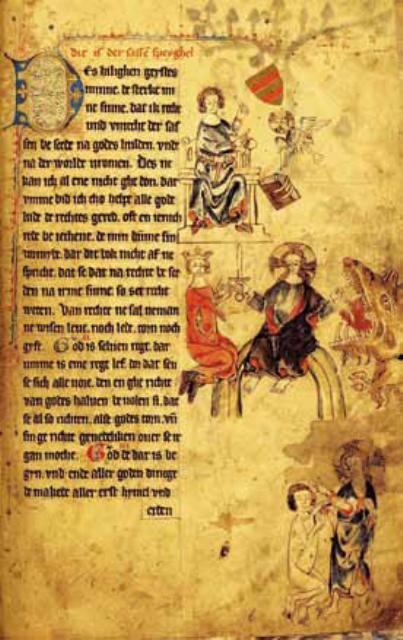 dit is der sasse speyghel
Des hilighen geystes
minne. de sterke mi
ne sinne. dat ik recht
unde vnrecht der sas
sen be scede na godes hulden. vnde
na der werlde vromen. Des ne
kan ich al ene nicht ghe don. dar
vmme bid ich cho helpe alle gode
lude de rechtes gered. oft en ienich
rede be ieghene. de min dumme sin
vormide. dar dit bok nicht af ne
spreche. dat se dat na rechte be sce
den na irme sinne. so set recht
weten. Van rechte ne sal neman
ne wisen leue. noch lede. torn noch
gyft. God is seluen regt. dar
vmme is eme regt lef. dar sen
se sich alle vore. den en ghe richte
van godes haluen be uolen si. dat
se al so richten. alse godes torn. vn
sin ge richte genedeliken ouer se ir
gan moche. God de dar is be
gyn. vnd ende aller goden dinege
de makede aller erst hymel vnd
erden